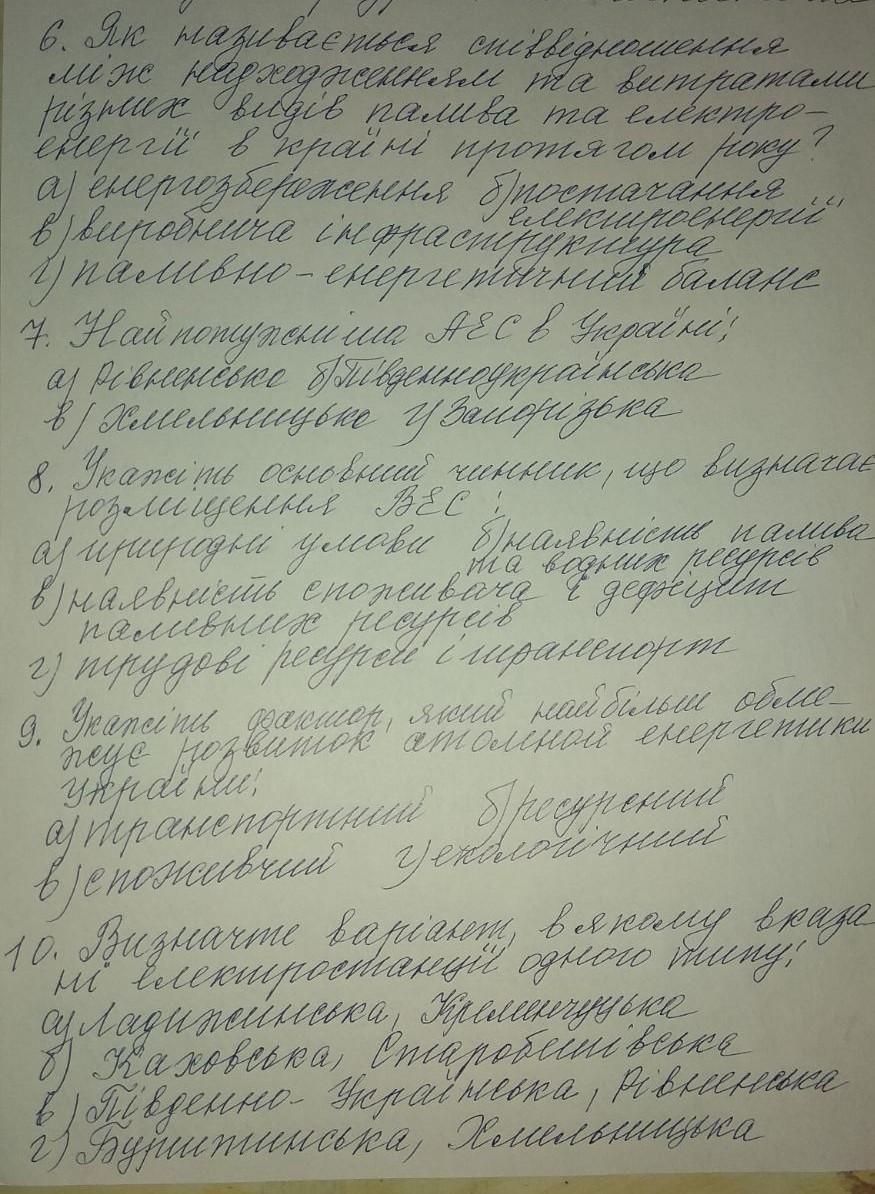 6. Як називається співвідношення
між надходженням та витратами
різних видів палива та електро-
енергії в країні протягом року?
а) енергозбереження б) постачання
електроенергії
в) виробнича інфраструктура
г) паливно-енергетичний баланс
7. Найпотужніша АЕС в Україні:
а) Рівненська б) Південноукраїнська
в) Хмельницька г) Запорізька
8. Укажіть основний чинник, що визначає
розміщення ВЕС:
а) природні умови б) наявність палива
та водних ресурсів
в) наявність споживача і дефіцит
паливних ресурсів
г) трудові ресурси і транспорт
9. Укажіть фактор, який найбільш обме-
жує розвиток атомної енергетики
України:
а) транспортний б) ресурсний
в) споживчий г) екологічний
10. Визначте варіант, в якому вказа
ні електростанції одного типу:
а) Ладижинська, Кременчуцька
б) Каховська, Старобешівська
в) Південно-Українська, Рівненська
г) Бурштинська, Хмельницька